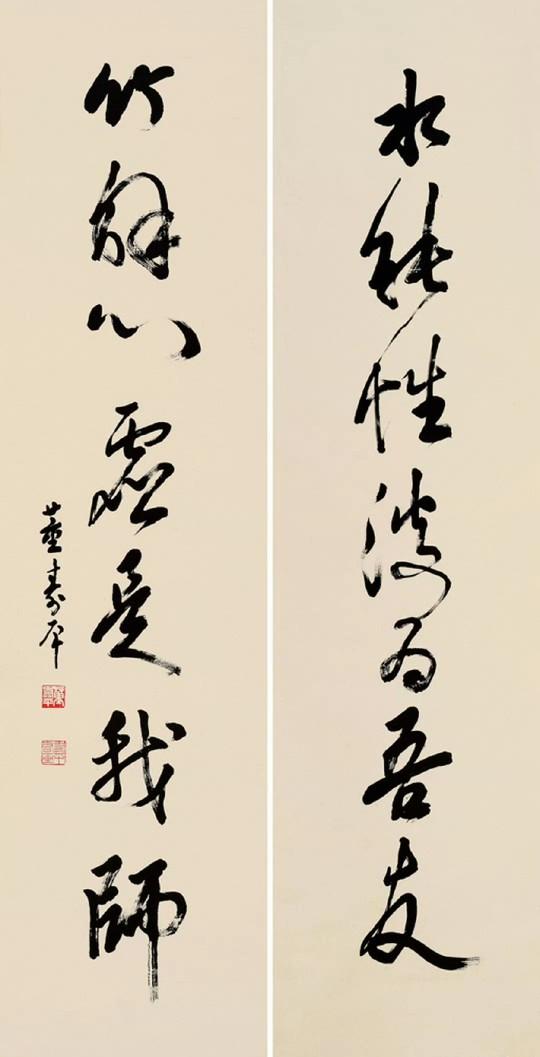 水能性淡為吾友
竹解心虛是我師
董壽平